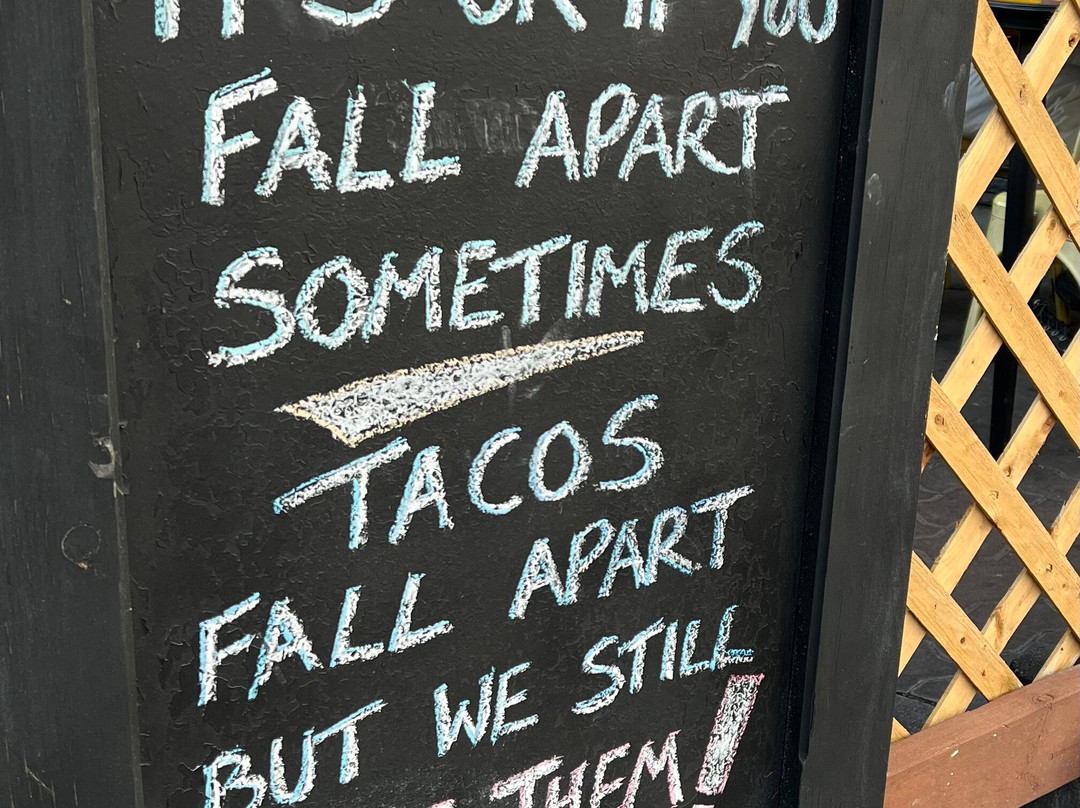 IT'S OK IF YOU
FALL APART
SOMETIMES
TACOS
FALL APART
BUT WE STILL
THEM!